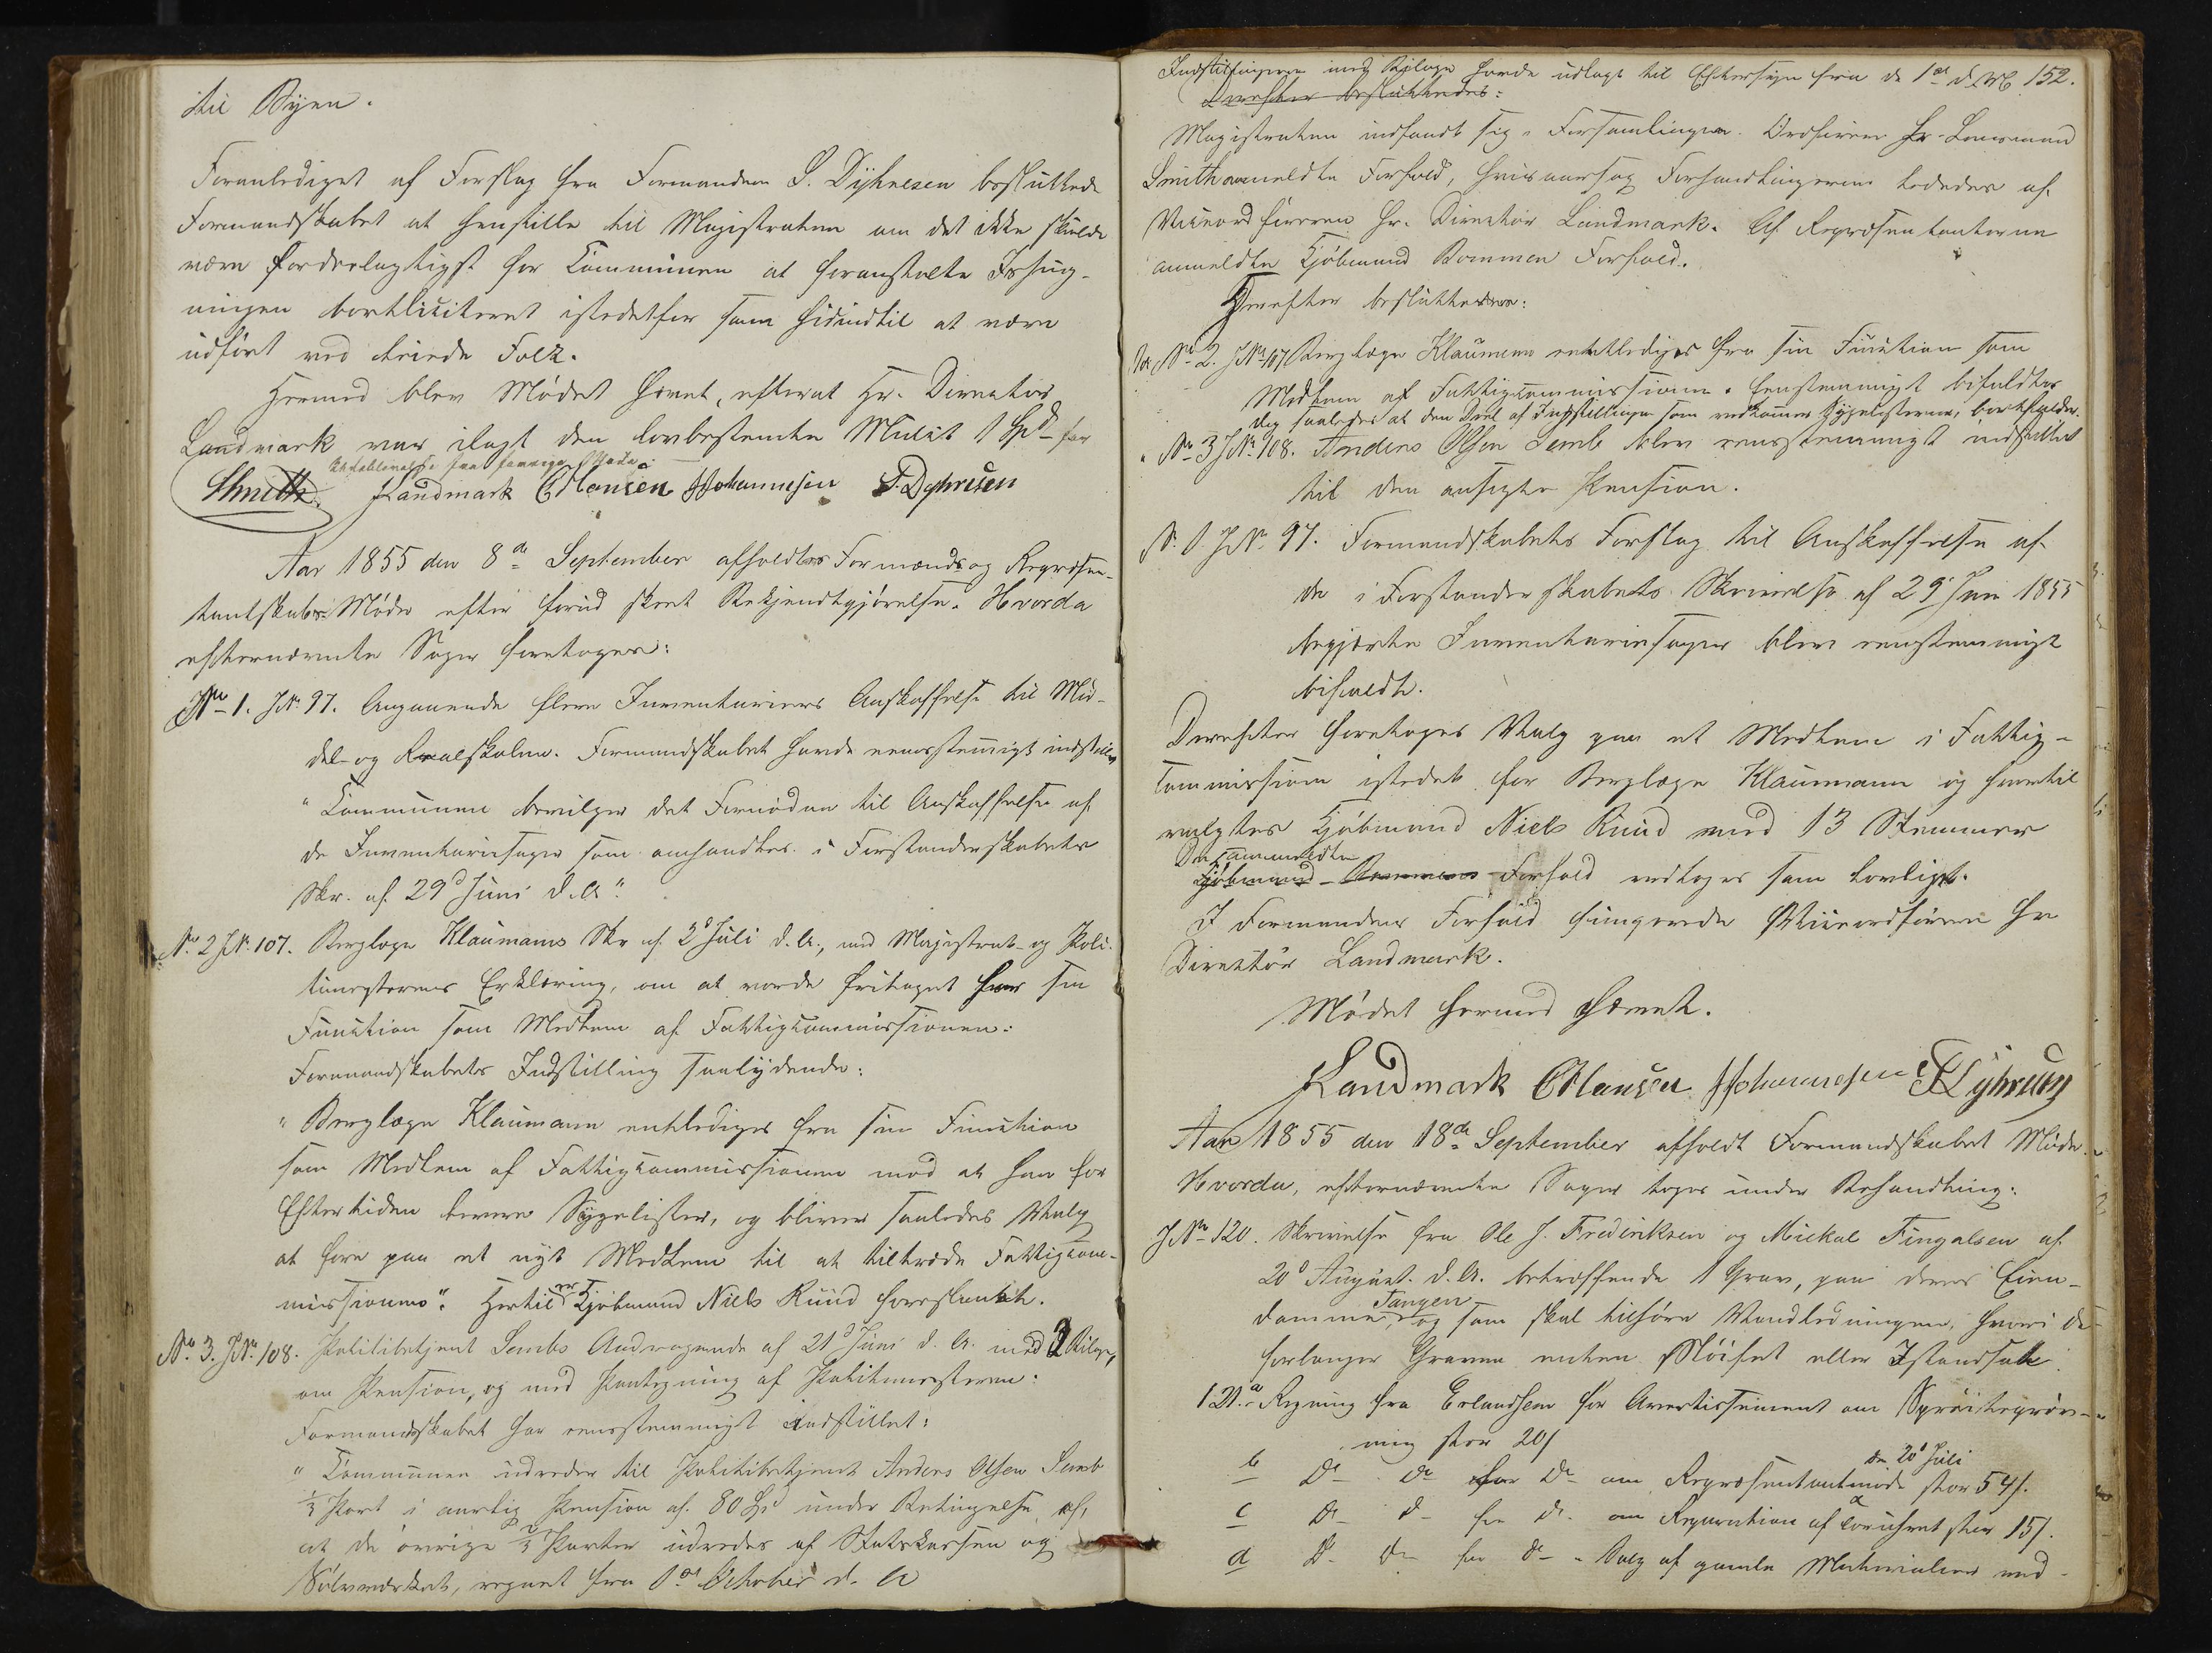 til Byen.
Foranlediget af Forslag fra Formanden S. Dyhresen besluttede
Formandskabet at henstille til Magistraten om det ikke skulde
være fordeelagtigst for Communen at foranstalte Ishug-
ningen bortliciteret istedetfor som hidindtil at være
udført ved leiede Folk.
Hermed blev Mødet hævet, efterat Hr. Directør
Landmark var ilagt den lovbestemte Mulct 1 Spd for
Udeblivelse fra forrige Møde.
Smith Landmark CHansen JJohannesen S. Dyhresen
Aar 1855 den 8de September afholdtes Formænds og Repræsen-
tantskabs Møde efter forud skeet Bekjendtgjørelse. Hvorda
efternævnte Sager foretoges:
No 1. JNo 97. Angaaende flere Inventariers Anskaffelse til Mid-
del- og Realskolen. Formandskabet havde eenstemigt indstillet
"Communen bevilger det Fornødne til Anskaffelse af
de Inventariesager som omhandles i Forstanderskabets
Skr. af 29d Juni d.A."
No 2 JNo 107. Berglæge Klaumanns Skr af 2d Juli d.A., med Magistrat- og Poli-
timesterens Erklæring, om at vorde fritaget for sin
Function som Medlem af Fattigcommissionen:
Formandskabets Indstilling saalydende:
"Berglæge Klaumann entlediges fra sin Function
som Medlem af Fattigcommissionen mod at han for
Eftertiden leverer Sygelister, og bliver saaledes Valg
at føre paa et nyt Medlem til at tiltræde Fattigcom-
missionen". Hertil er Kjøbmand Niels Ruud foreslaaet.
No 3. JNo 108. Politibetjent Sembs Andragende af 21d Juni d.A. med 3 Bilage,
om Pension, og med Paategning af Politimesteren:
Formandskabet har eenstemmigt indstillet:
"Communen udreder til Politibetjent Anders Olsen Semb
1/3 Part i aarlig Pension af 80 Spd under Betingelse af,
at de øvrige 2/3 Parter udredes af Statskassen og
Sølvværket, regnet fra 1ste October d.A
Indstillingerne med Bilage havde udlagt til Eftersyn fra de 1ste d.M. 152.
Derefter besluttedes:
Magistraten indfandt sig i Forsamlingen. Ordføreren Hr. Lensmand
Smith anmeldte Forfald, hvisaarsag Forhandlingerne lededes af
Viceordføreren Hr. Directør Landmark. Af Repræsentanterne
anmeldte Kjøbmand Bommen Forfald.
Derefter besluttedes:
No 2. JNo 107 Berglæge Klaumann entlediges fra sin Function som
Medlem af Fattigcommissionen. Eenstemmigt bifaldtes
dog saaledes at den Deel af Indstillingen som vedkommer Sygelisterne, bortfalder.
No 3 JNo 108. Anders Olsen Semb blev eenstemmigt indstillet
til den ansøgte Pension.
No 1 JNo 97. Formandskabets Forslag til Anskaffelse af
de i Forstanderskabets Skrivelse af 29 Juni 1855
begjærte Inventariesager blev eenstemmigt
bifaldt.
Derefter foretoges Valg paa et Medlem i Fattig-
commission istedet for Berglæge Klaumann og hvortil
valgtes Kjøbmand Niels Ruud med 13 Stemmer
De anmeldte
Kjøbmand Bommens Forfald vedtoges som lovligt.
I Formandens Forfald fungerede Viceordføreren Hr
Directør Landmark.
Mødet hermed hævet.
Landmark CHansen JJohannesen S Dyhresen
Aar 1855 den 18de September afholdt Formandskabet Møde.
Hvorda, efternævnte Sager toges under Behandling:
JNo 120. Skrivelse fra Ole J. Frederiksen og Mickal Fingalsen af
20d August d.A. betræffende 1 Grav, paa deres Eien-
domme, Tangen og som skal tilhøre Vandledningen, hvori de
forlanger Graven enten sløifet eller Istandsatt
121.a Regning fra Erlandsen for Avertissement om Sprøiteprøv-
ning stor 20 s
b Do do for Do om Repræsentantmøde den 20d Juli stor 54 s.
c Do do for do om Reparation af stor 15 s.
d Do do for do Salg af gamle Materialier ved